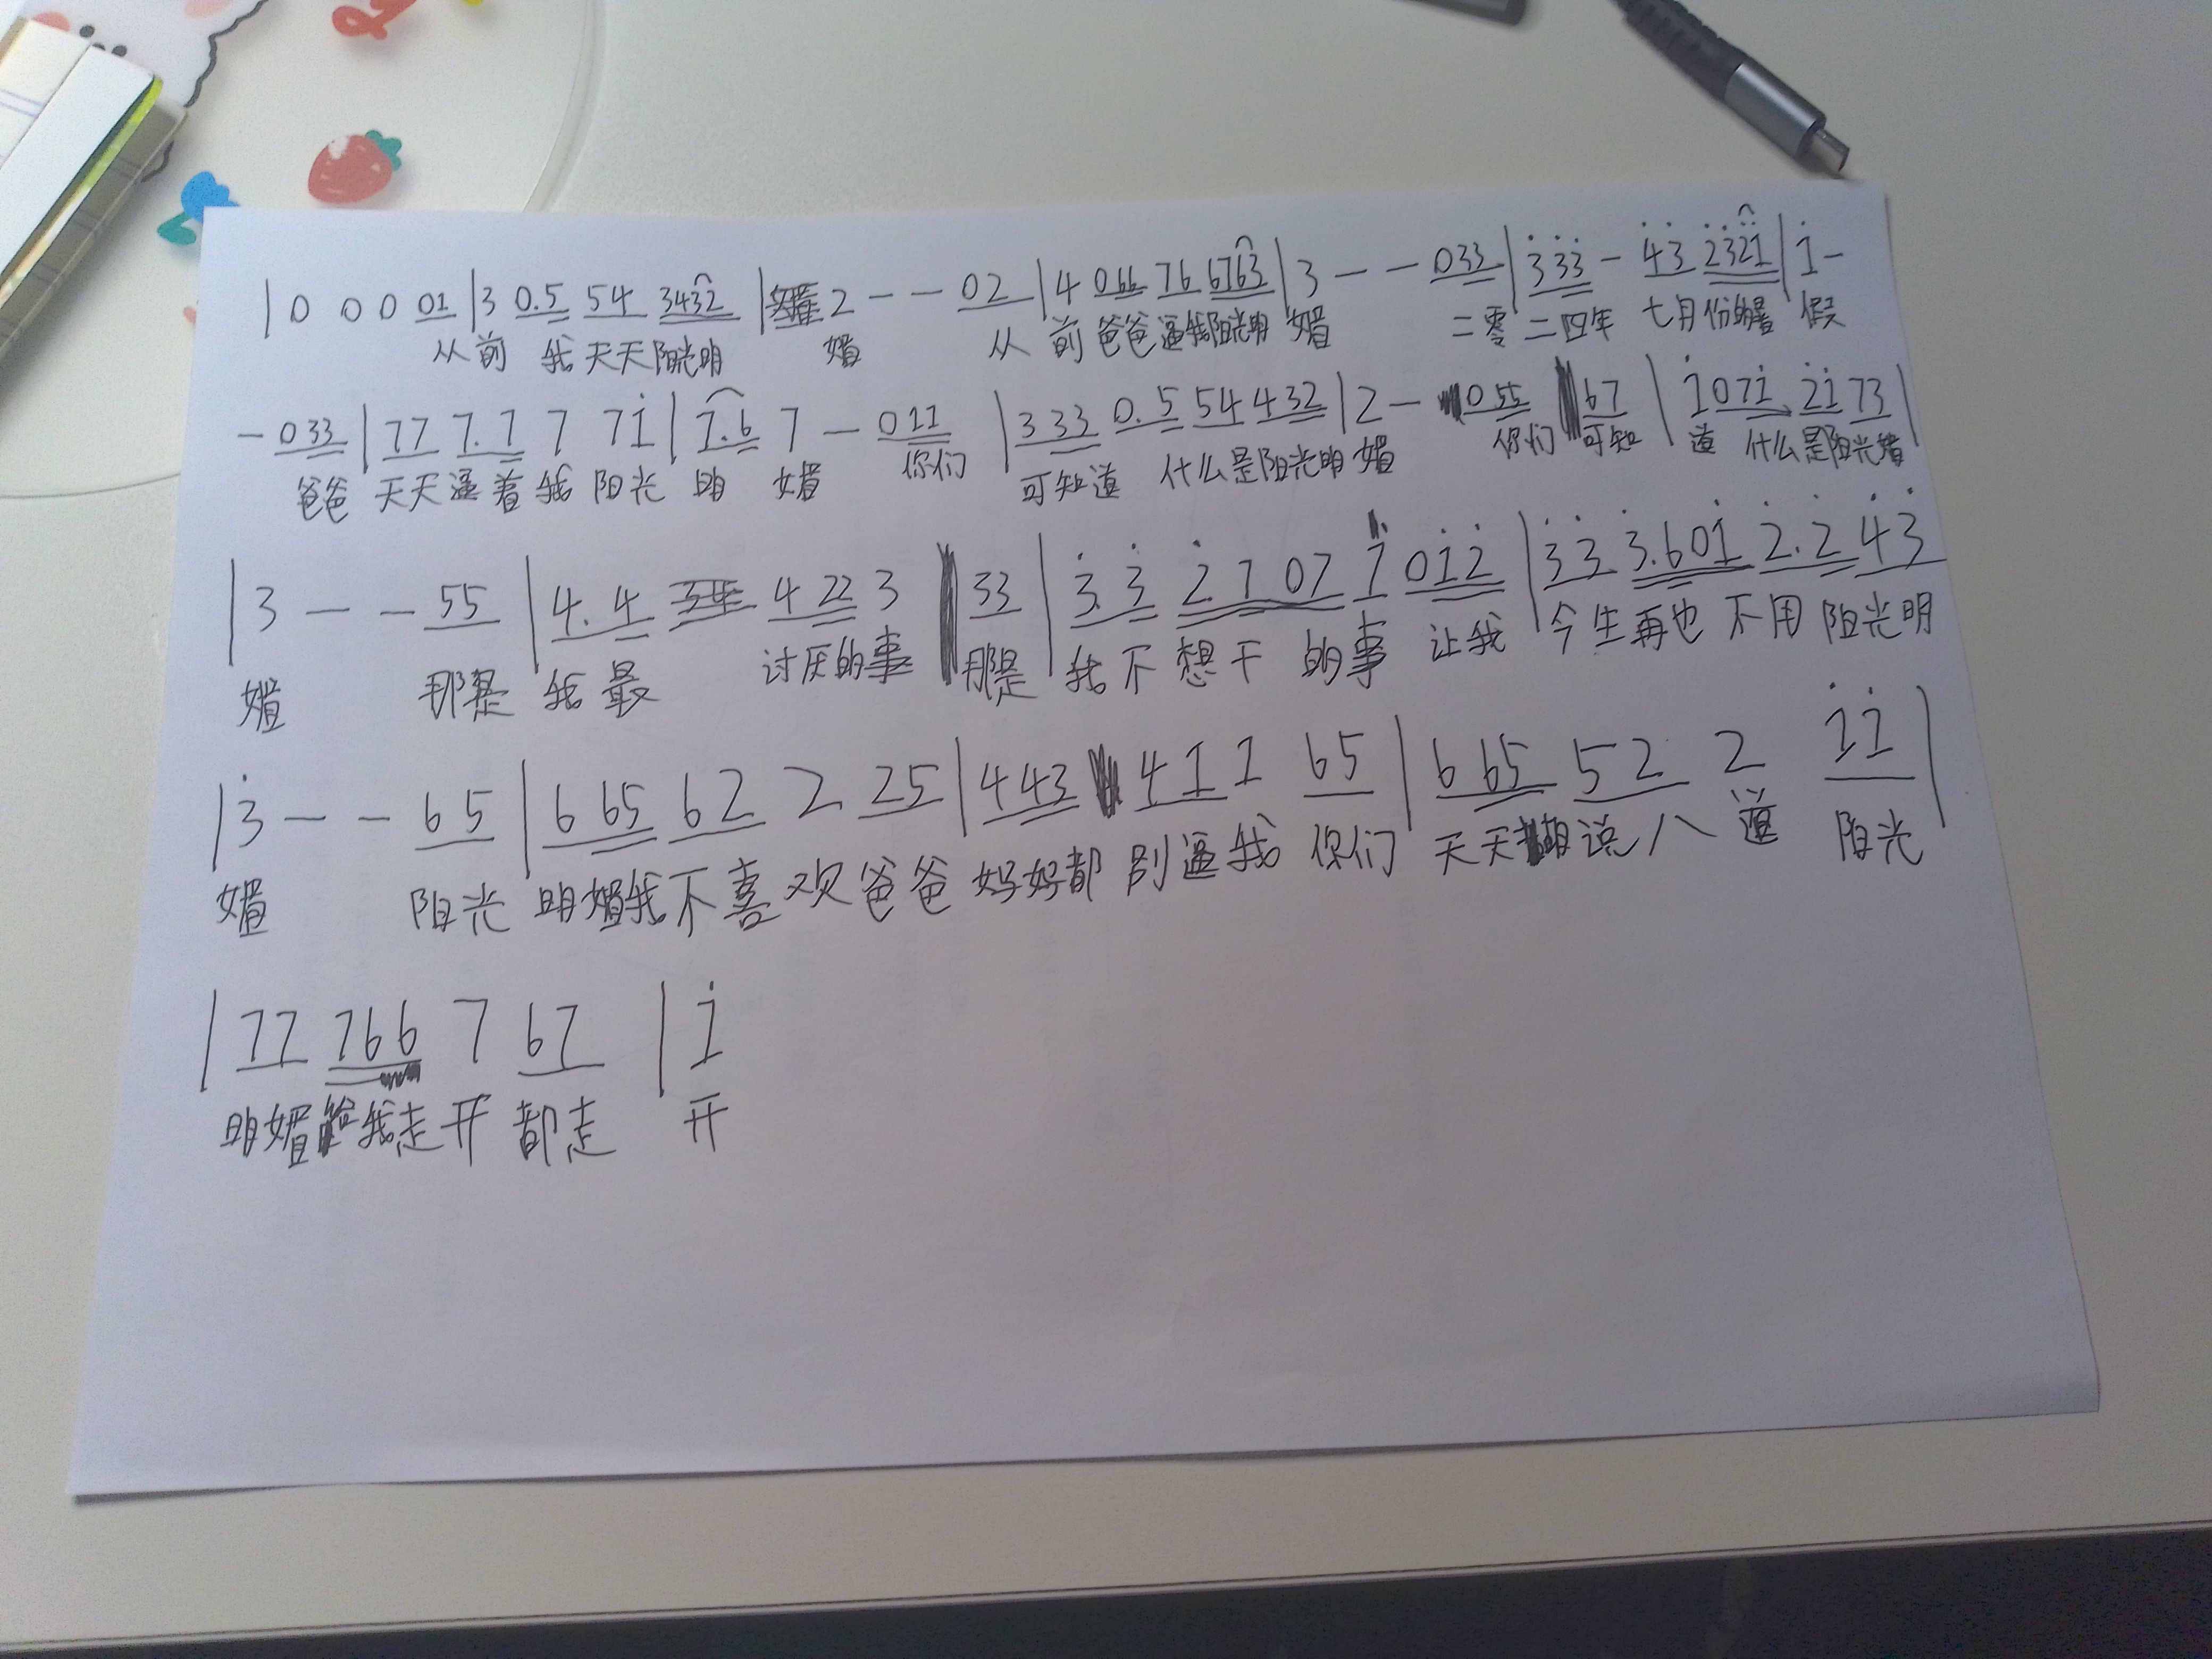 | 0 0 0 01 | 3 0.5 54 3432 | 2 - - 02 | 4 066 76 6763 | 3 - - 033 | 3̇3̇3̇ - 4̇3̇ 2̇3̇2̇1̇ | 1̇ -
从前 我天天阳光明 媚 从前爸爸逼我阳光明 媚 二零二四年 七月份的暑 假
- 033 | 77 7.7 7 71̇ | 7.6 7 - 011 | 333 0.5 54 432 | 2 - 055 67 | 1̇ 071̇ 2̇1̇ 73 |
爸爸 天天逼着我 阳光 明 媚 你们 可知道 什么是阳光明 媚 你们 可知 道 什么是阳光明媚
| 3 - - 55 | 4.4 4 22 3 33 | 3̇.3̇ 2̇ 7 07 1̇ 01̇2̇ | 3̇3̇ 3̇.601̇ 2̇.2̇ 4̇3̇
媚 那是 我最 讨厌的事 那是 我不想干 的事 让我 今生再也 不用 阳光明
| 3̇ - - 65 | 6 65 62 2 25 | 443 411 65 | 6 65 52 2 1̇1̇ |
媚 阳光 明媚我不喜欢爸爸 妈妈都 别逼我 你们 天天胡说八道 阳光
| 77 766 7 67 | 1̇
明媚给我走开 都走 开